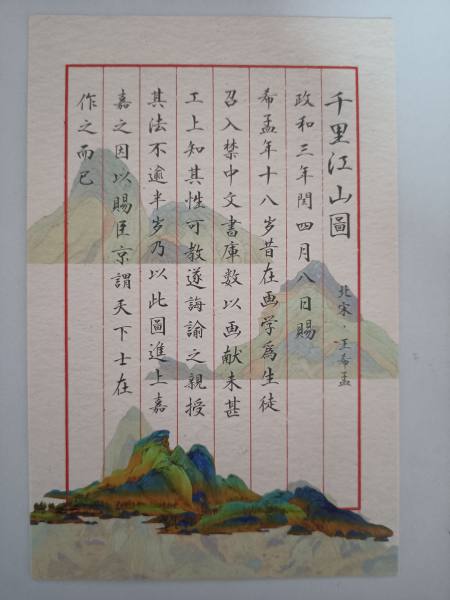 千里江山圖
北宋·王希孟
政和三年閏四月八日賜
希孟年十八岁昔在画学為生徒
召入禁中文書庫数以画献未甚
工上知其性可教遂誨諭之親授
其法不逾半岁乃以此圖進上嘉
嘉之因以賜臣京謂天下士在
作之而已